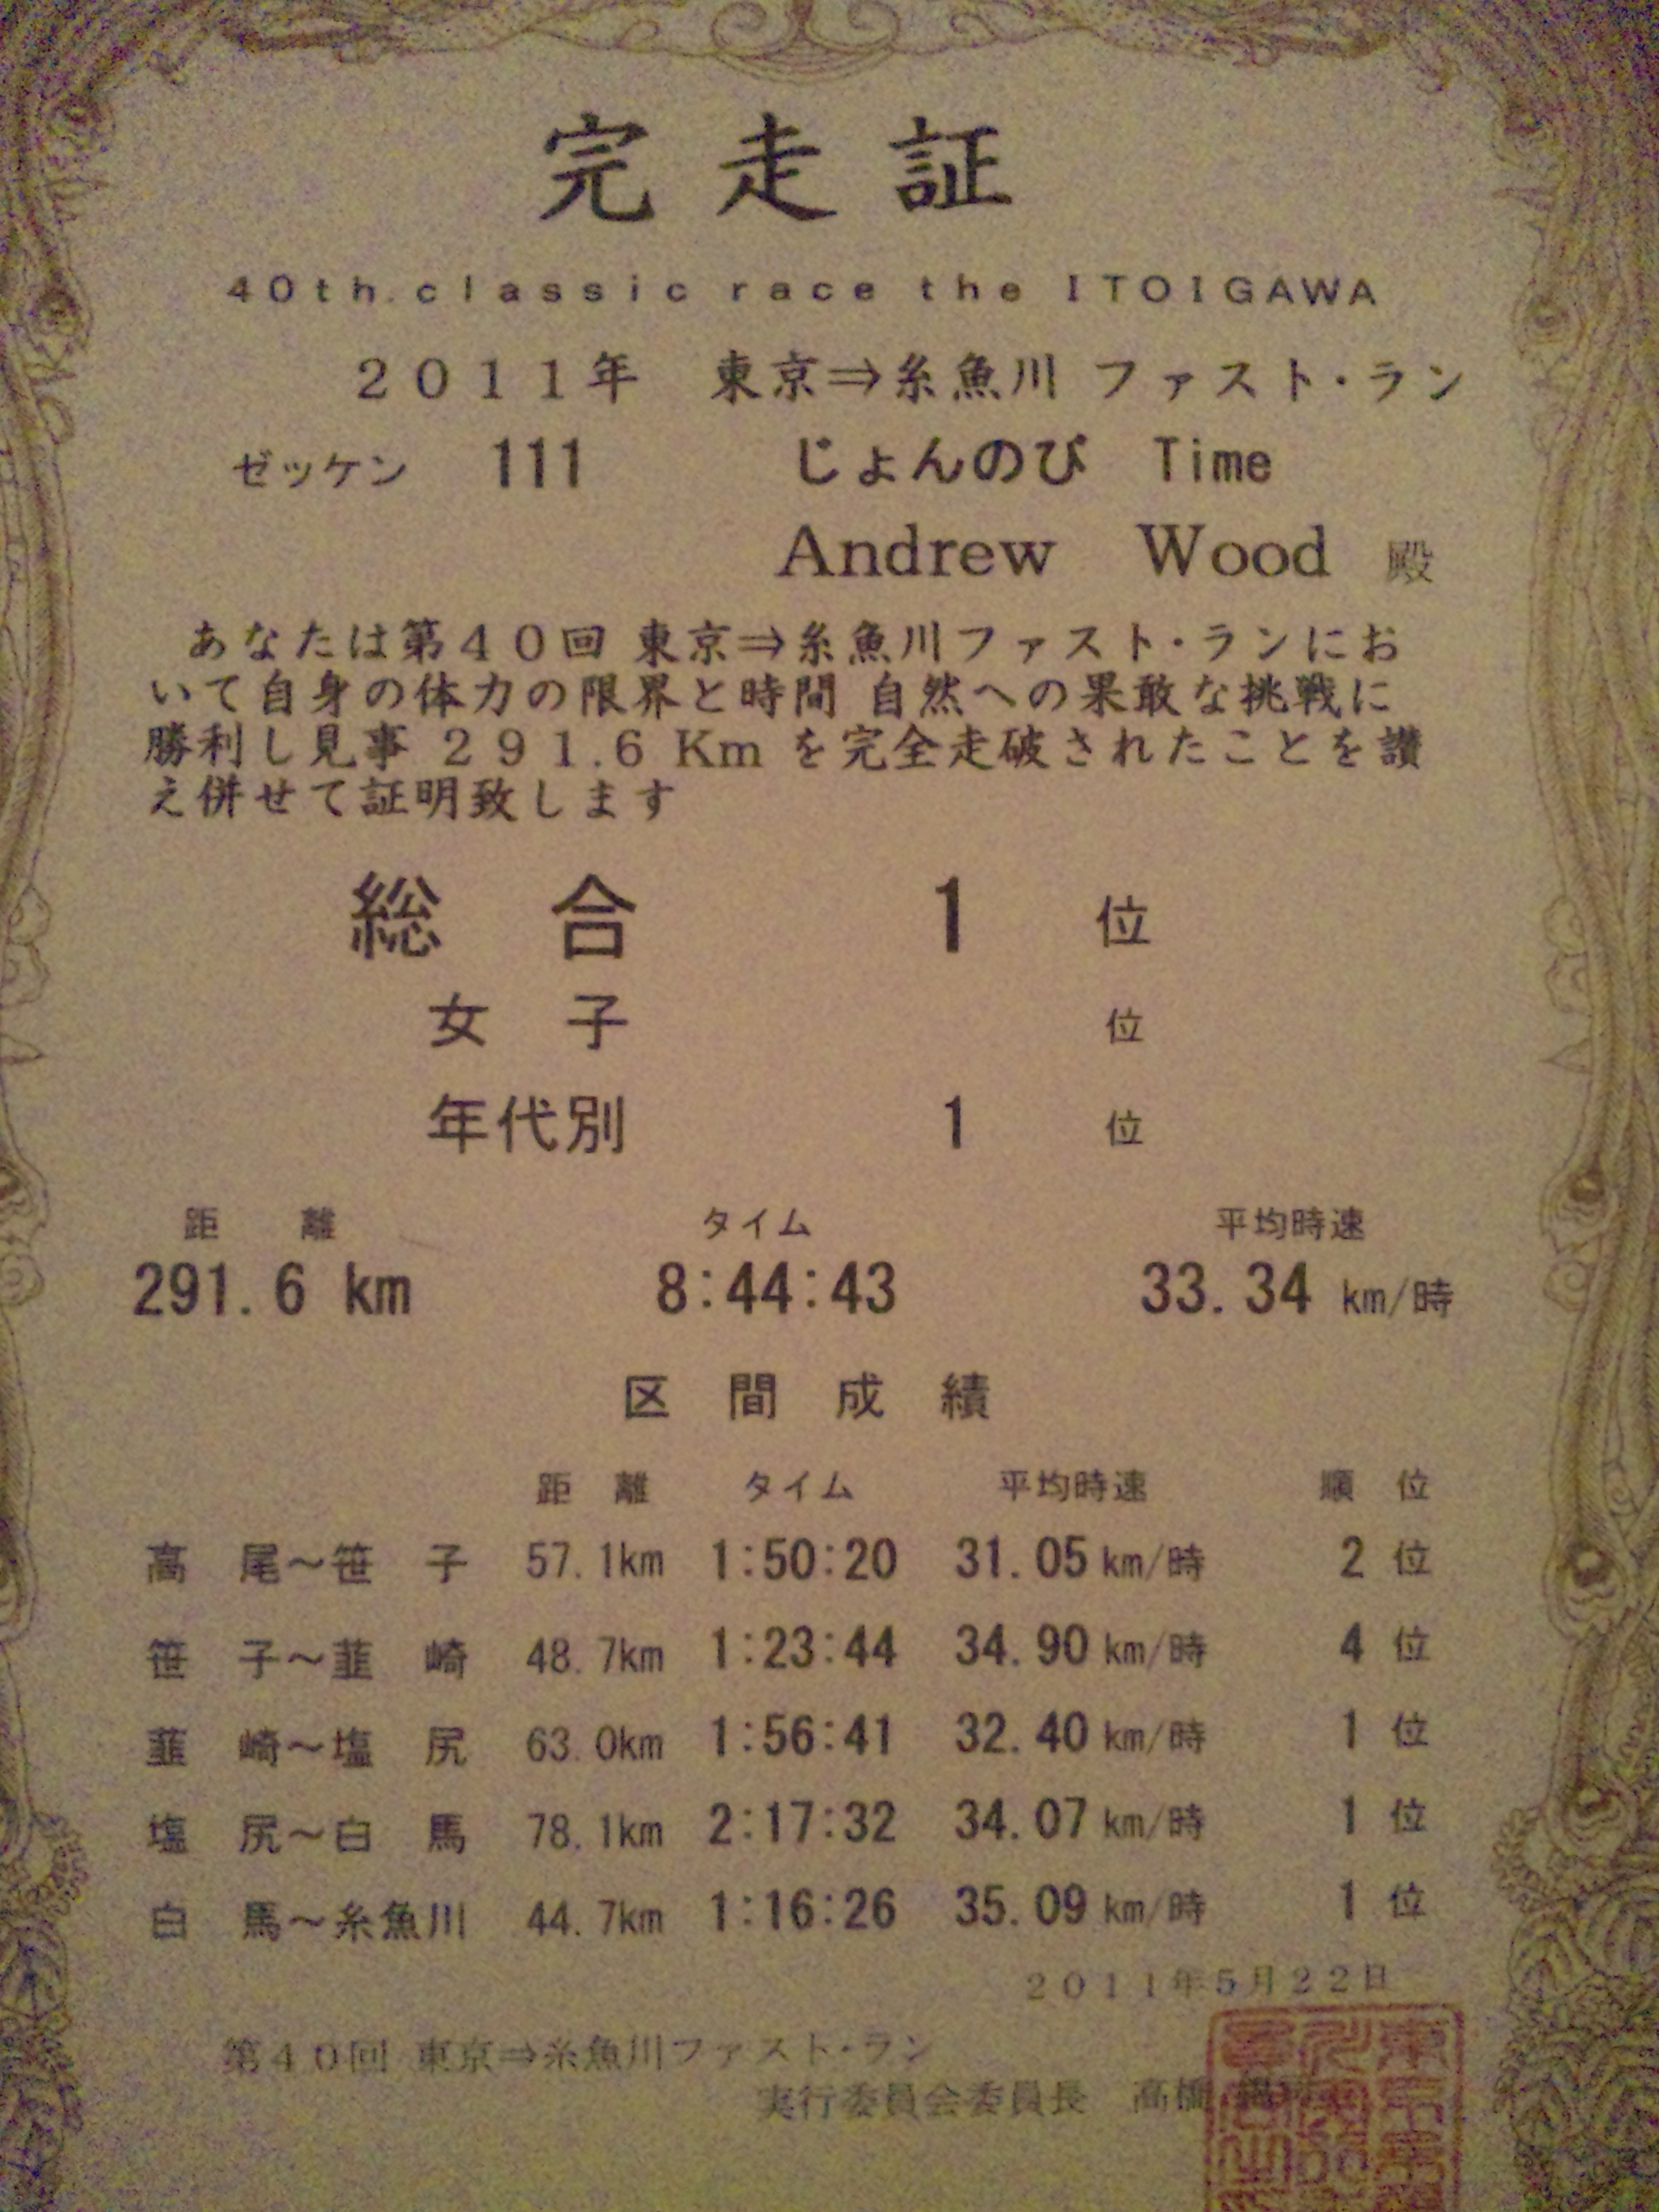 完走証
40th.classic race the ITOIGAWA
2011年 東京⇒糸魚川 ファスト・ラン
ゼッケン 111 じょんのび Time
Andrew Wood 殿
あなたは第40回 東京⇒糸魚川ファスト・ランにお
いて自身の体力の限界と時間 自然への果敢な挑戦に
勝利し見事 291.6 Km を完全走破されたことを讃
え併せて証明致します
総合 1 位
女子 位
年代別 1 位
距離 タイム 平均時速
291.6 km 8:44:43 33.34 km/時
区間成績
距離 タイム 平均時速 順位
高尾～笹子 57.1km 1:50:20 31.05 km/時 2 位
笹子～韮崎 48.7km 1:23:44 34.90 km/時 4 位
韮崎～塩尻 63.0km 1:56:41 32.40 km/時 1 位
塩尻～白馬 78.1km 2:17:32 34.07 km/時 1 位
白馬～糸魚川 44.7km 1:16:26 35.09 km/時 1 位
2011年5月22日
第40回 東京⇒糸魚川ファスト・ラン
実行委員会委員長 高橋